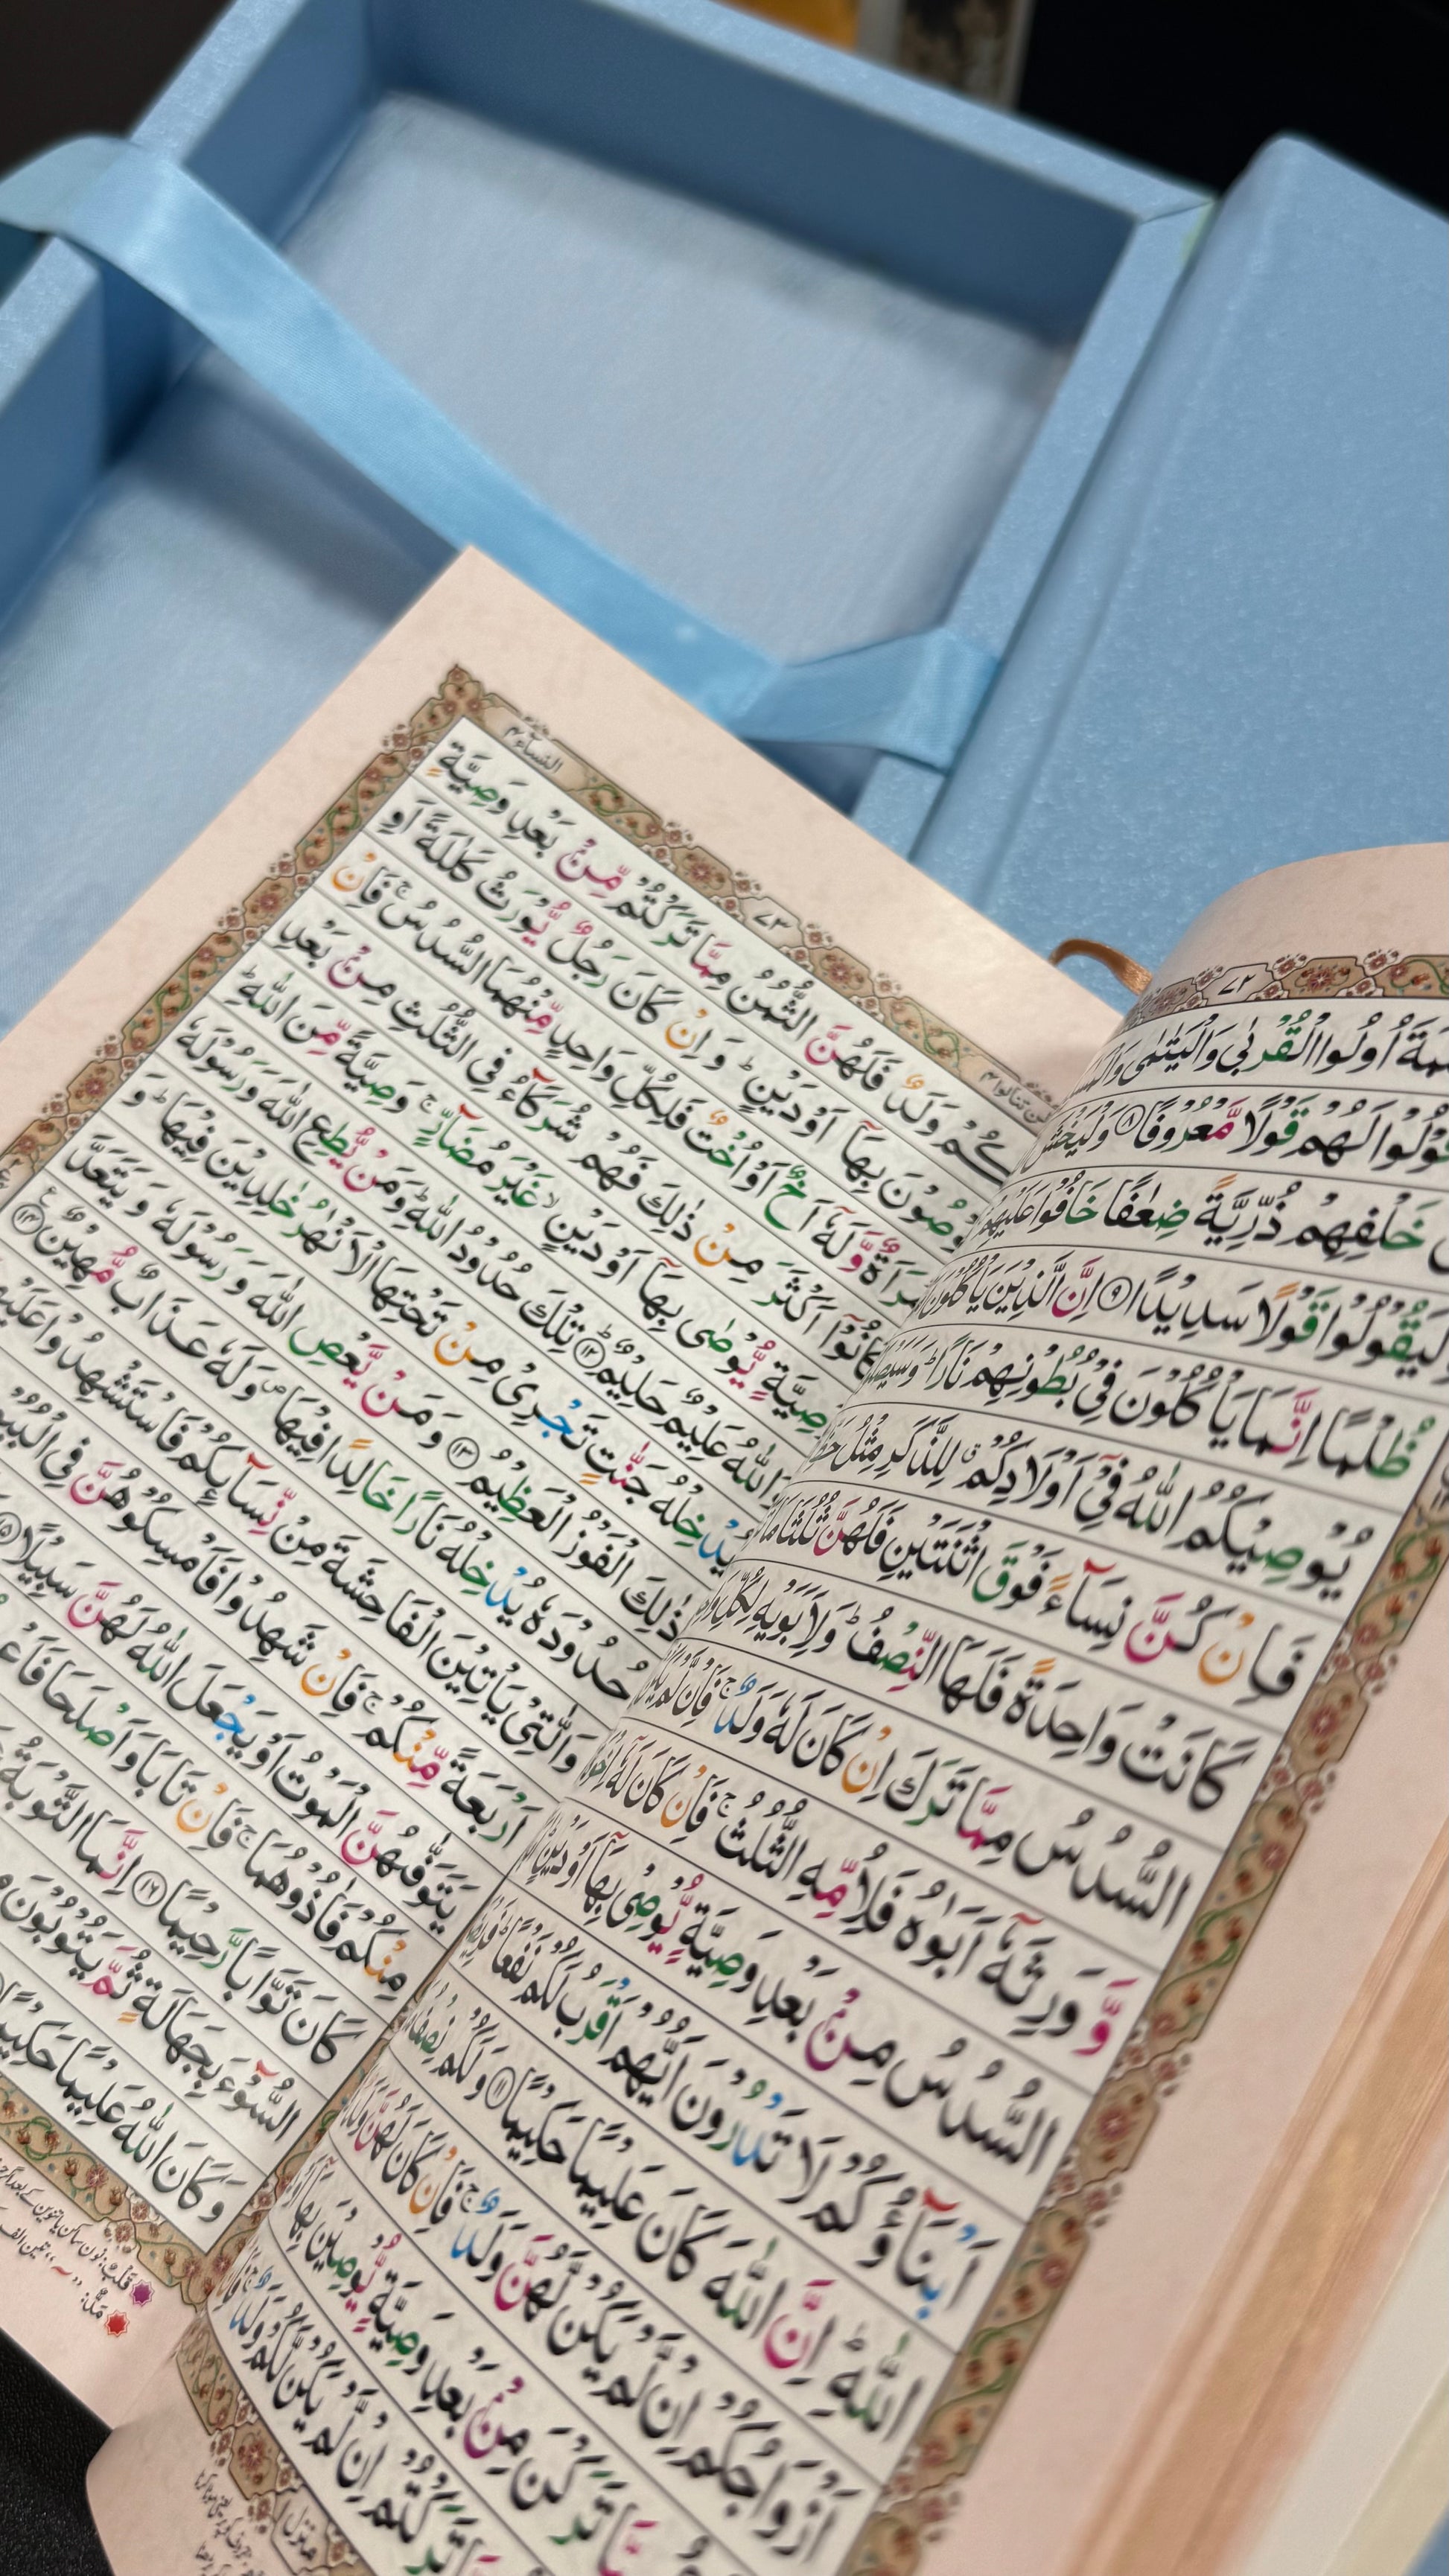 ٧٢
أُولُوا الْقُرْبٰى وَالْيَتٰمٰى
لَهُمْ قَوْلًا مَّعْرُوْفًا ٨ وَلْيَخْشَ
خَلْفِهِمْ ذُرِّيَّةً ضِعٰفًا خَافُوْا عَلَيْهِمْ
لْيَقُوْلُوْا قَوْلًا سَدِيْدًا ٩ اِنَّ الَّذِيْنَ يَاْكُلُوْنَ
ظُلْمًا اِنَّمَا يَاْكُلُوْنَ فِيْ بُطُوْنِهِمْ نَارًاؕ
يُوْصِيْكُمُ اللّٰهُ فِيْٓ اَوْلَادِكُمْۗ لِلذَّكَرِ مِثْلُ
فَاِنْ كُنَّ نِسَآءً فَوْقَ اثْنَتَيْنِ فَلَهُنَّ ثُلُثَا مَا
كَانَتْ وَاحِدَةً فَلَهَا النِّصْفُؕ وَلِاَبَوَيْهِ لِكُلِّ
السُّدُسُ مِمَّا تَرَكَ اِنْ كَانَ لَهٗ وَلَدٌۚ فَاِنْ لَّمْ
وَّوَرِثَهٗٓ اَبَوٰهُ فَلِاُمِّهِ الثُّلُثُۚ فَاِنْ كَانَ لَهٗٓ
السُّدُسُ مِنْۢ بَعْدِ وَصِيَّةٍ يُّوْصِيْ بِهَآ اَوْ دَيْنٍؕ
اَبْنَآؤُكُمْ لَا تَدْرُوْنَ اَيُّهُمْ اَقْرَبُ لَكُمْ نَفْعًاؕ
اللّٰهِؕ اِنَّ اللّٰهَ كَانَ عَلِيْمًا حَكِيْمًا ١١ وَلَكُمْ نِصْفُ
اَزْوَاجُكُمْ اِنْ لَّمْ يَكُنْ لَّهُنَّ وَلَدٌۚ فَاِنْ كَانَ لَهُنَّ
تَرَكْنَ مِنْۢ بَعْدِ وَصِيَّةٍ يُّوْصِيْنَ بِهَآ
تَرَكْتُمْ اِنْ لَّمْ يَكُنْ لَّكُمْ وَلَدٌۚ
النساء ٤
٧٣
لن تنالوا ٤
كُمْ وَلَدٌ فَلَهُنَّ الثُّمُنُ مِمَّا تَرَكْتُمْ مِّنْۢ بَعْدِ وَصِيَّةٍ
تُوْصُوْنَ بِهَآ اَوْ دَيْنٍؕ وَاِنْ كَانَ رَجُلٌ يُّوْرَثُ كَلٰلَةً اَوِ
امْرَاَةٌ وَّلَهٗٓ اَخٌ اَوْ اُخْتٌ فَلِكُلِّ وَاحِدٍ مِّنْهُمَا السُّدُسُۚ فَاِنْ
كَانُوْٓا اَكْثَرَ مِنْ ذٰلِكَ فَهُمْ شُرَكَآءُ فِي الثُّلُثِ مِنْۢ بَعْدِ
وَصِيَّةٍ يُّوْصٰى بِهَآ اَوْ دَيْنٍۙ غَيْرَ مُضَآرٍّۚ وَصِيَّةً مِّنَ اللّٰهِؕ
وَاللّٰهُ عَلِيْمٌ حَلِيْمٌؕ ١٢ تِلْكَ حُدُوْدُ اللّٰهِؕ وَمَنْ يُّطِعِ اللّٰهَ وَرَسُوْلَهٗ
يُدْخِلْهُ جَنّٰتٍ تَجْرِيْ مِنْ تَحْتِهَا الْاَنْهٰرُ خٰلِدِيْنَ فِيْهَاؕ وَ
ذٰلِكَ الْفَوْزُ الْعَظِيْمُ ١٣ وَمَنْ يَّعْصِ اللّٰهَ وَرَسُوْلَهٗ وَيَتَعَدَّ
حُدُوْدَهٗ يُدْخِلْهُ نَارًا خَالِدًا فِيْهَا۪ وَلَهٗ عَذَابٌ مُّهِيْنٌ ١٤
وَالّٰتِيْ يَاْتِيْنَ الْفَاحِشَةَ مِنْ نِّسَآئِكُمْ فَاسْتَشْهِدُوْا عَلَيْهِنَّ
اَرْبَعَةً مِّنْكُمْۚ فَاِنْ شَهِدُوْا فَاَمْسِكُوْهُنَّ فِي الْبُيُوْتِ
يَتَوَفّٰهُنَّ الْمَوْتُ اَوْ يَجْعَلَ اللّٰهُ لَهُنَّ سَبِيْلًا ١٥
مِنْكُمْ فَاٰذُوْهُمَاۚ فَاِنْ تَابَا وَاَصْلَحَا
كَانَ تَوَّابًا رَّحِيْمًا ١٦ اِنَّمَا التَّوْبَةُ
السُّوْٓءَ بِجَهَالَةٍ ثُمَّ يَتُوْبُوْنَ
وَكَانَ اللّٰهُ عَلِيْمًا حَكِيْمًا
قلب: نون ساکن یا تنوین کے بعد اگر
مد: